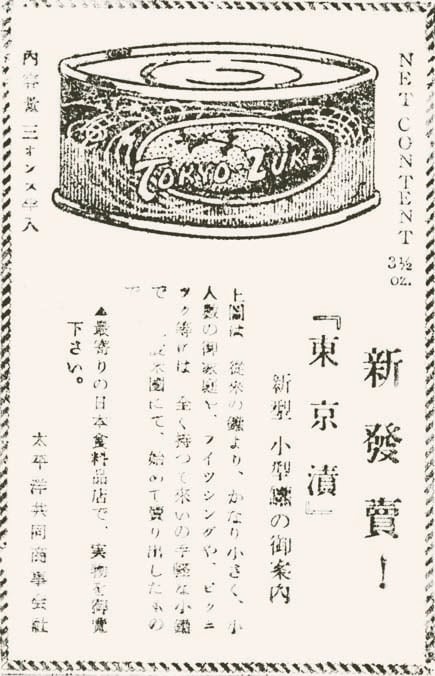 NET CONTENT 3½ oz.
TOKYO ZUKE
內容量 三オンス半入
新發賣!
『東京漬』
新型 小型罐の御案内
上圖は 從來の罐より、かなり小さく、小
人數の御家庭や、フイツシングや、ピクニ
ツク等には 全く持つて來いの手輕な小罐
で 米國にて、始めて賣り出したもの
で
▲最寄りの日本食料品店で、實物を御覽
下さい。
太平洋共同商事会社